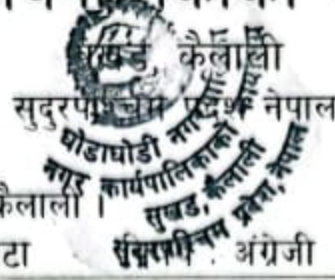 सुखड, कैलाली
सुदुरपश्चिम प्रदेश, नेपाल
घोडाघोडी नगरपालिका
नगर कार्यपालिकाको कार्यालय
सुखड, कैलाली
सुदूरपश्चिम प्रदेश, नेपाल
कैलाली ।
टा
अंग्रेजी